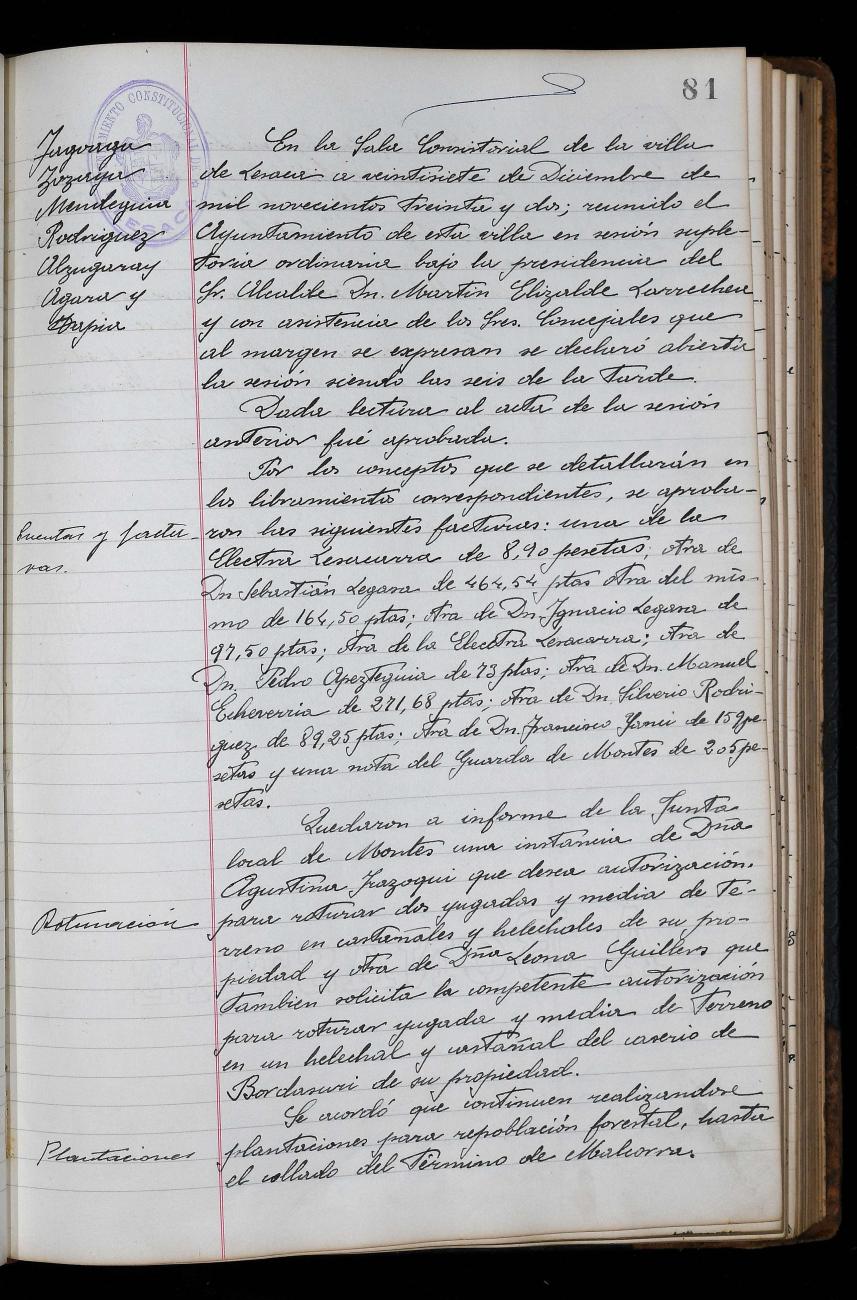 81
AYUNTAMIENTO CONSTITUCIONAL DE LESACA
Jagoaga
Zozaya
Mendeguia
Rodriguez
Alzugaray
Agara y
Tapia
En la Sala Consistorial de la villa
de Lesaca a veintisiete de Diciembre de
mil novecientos treinta y dos; reunido el
Ayuntamiento de esta villa en sesión suple-
toria ordinaria bajo la presidencia del
Sr. Alcalde Dn. Martin Elizalde Larrechea
y con asistencia de los Sres. Concejales que
al margen se expresan se declaró abierta
la sesión siendo las seis de la tarde.
Dada lectura al acta de la sesión
anterior fué aprobada.
Cuentas y factu-
ras.
Por los conceptos que se detallarán en
los libramientos correspondientes, se aproba-
ron las siguientes facturas: una de la
Electra Lesacarra de 8,90 pesetas; otra de
Dn Sebastián Legasa de 464,54 ptas otra del mis-
mo de 164,50 ptas; otra de Dn. Ignacio Legasa de
97,50 ptas; otra de la Electra Lesacarra; otra de
Dn. Pedro Apezteguia de 73 ptas; otra de Dn. Manuel
Echeverria de 271,68 ptas; otra de Dn. Silverio Rodri-
guez de 89,25 ptas; otra de Dn. Francisco Yanci de 159 pe-
setas y una nota del Guarda de Montes de 205 pe-
setas.
Roturación
Quedaron a informe de la Junta
local de Montes una instancia de Dña
Agustina Irazoqui que desea autorización.
para roturar dos yugadas y media de te-
rreno en castañales y helechales de su pro-
piedad y otra de Dña Leona Guillers que
tambien solicita la competente autorización
para roturar yugada y media de terreno
en un helechal y castañal del caserio de
Bordasuri de su propiedad.
Plantaciones
Se acordó que continuen realizandose
plantaciones para repoblación forestal, hasta
el collado del término de Mahorra.